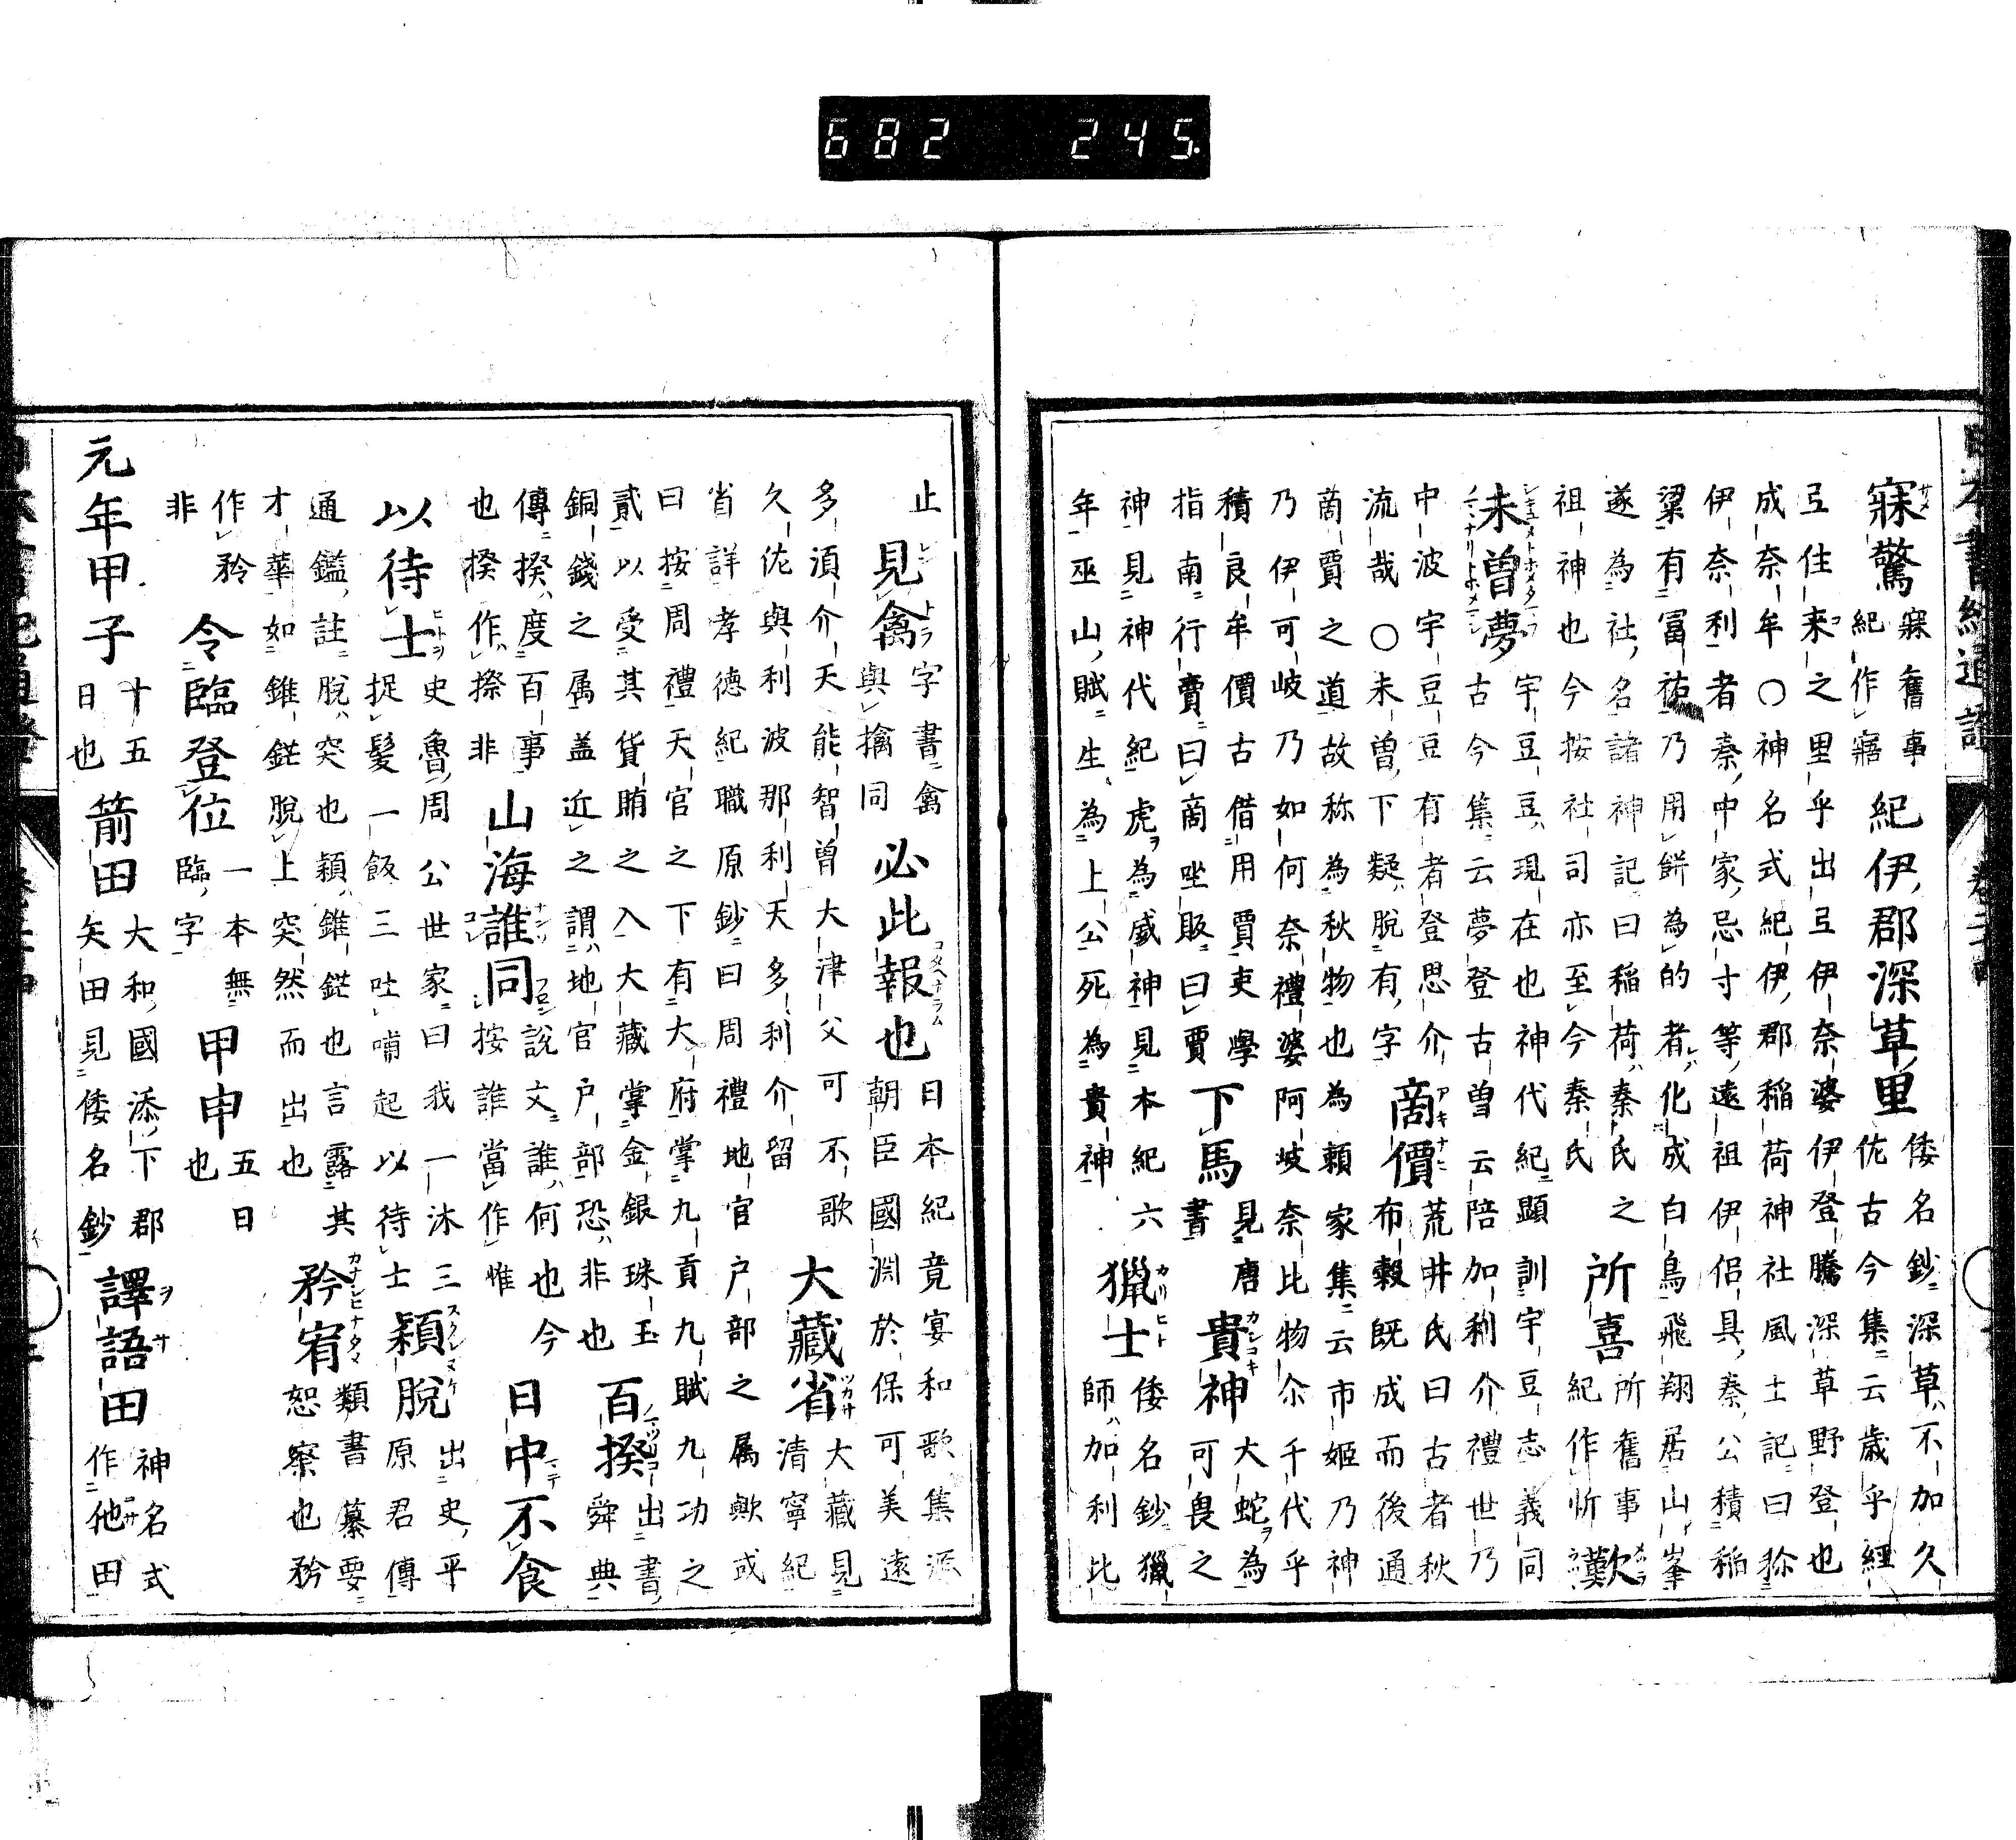 682 245
寐驚 寐舊事紀作寤 紀伊郡深草里 倭名鈔深草不加久佐古今集云歳乎經
弖住來之里乎出弖伊奈婆伊登騰深草野登也
成奈牟○神名式紀伊郡稲荷神社風土記曰称
伊奈利者秦中家忌寸等遠祖伊侶具秦公積稲
粱有冨祐乃用餅為的者化成白鳥飛翔居山峯
遂為社名諸神記曰稲荷秦氏之
祖神也今按社司亦至今秦氏 所喜 所舊事紀作忻 歎
未曾夢 宇豆豆現在也神代紀顕訓宇豆志義同古今集云夢登古曽云陪加利介礼世乃
中波宇豆豆有者登思介
流哉○未曽下疑脱有字 商價 荒井氏曰古者秋布穀既成而後通
商賈之道故称為秋物也為頼家集云市姫乃神
乃伊可岐乃如何奈禮婆阿岐奈比物尓千代乎
積良牟價古借用賈吏學
指南行賣曰商坐販曰賈 下馬 見唐書 貴神 大蛇為可畏之
神見神代紀虎為威神見本紀六
年巫山賦生為上公死為貴神 獵士 倭名鈔獵師加利比
止 見禽 字書禽與擒同 必此報也 日本紀竟宴和歌集源朝臣國淵於保可美遠
多湏介天能智曽大津父可不歌
久佐與利波那利天多利介留 大藏省 大藏見清寧紀
省詳孝徳紀職原鈔曰周禮地官戸部之属歟或
曰按周禮天官之下有大府掌九貢九賦九功之
貳以受其貨賄之入大藏掌金銀珠玉
銅錢之属盖近之謂地官戸部恐非也 百揆 出書舜典
傳揆度百事
也揆作撩非 山海誰同 説文誰何也今按誰當作惟 日中不食
以待士 史魯周公世家曰我一沐三捉髪一飯三吐哺起以待士 穎脱 出史平原君傳
通鑑註脱突也穎錐鋩也言露其
才華如錐鋩脱上突然而出也 矜宥 類書纂要恕察也矜
作矜非 令臨登位 一本無臨字 甲申 五日也
元年甲子 十五日也 箭田 大和國添下郡矢田見倭名鈔 譯語田 神名式作他田